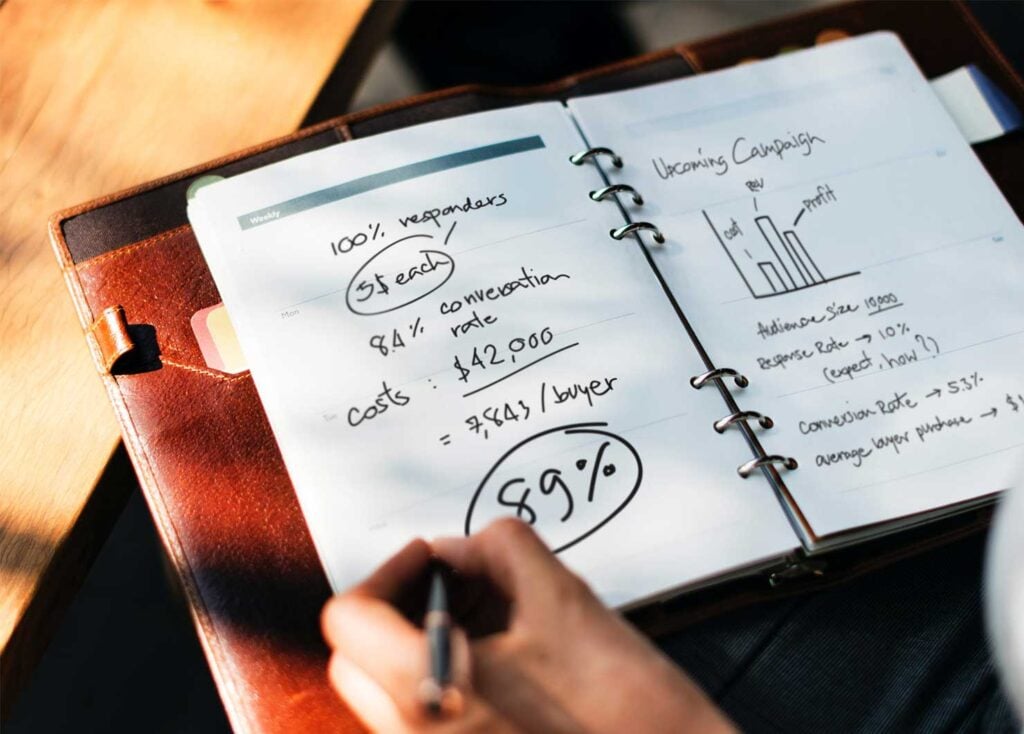 Weekly
100% responders
5$ each
Mon
8.4% conversation
rate
costs : $42,000
= 7,843 / buyer
89%
Upcoming Campaign
cost
Rev
profit
Audience Size 10,000
Response Rate → 10%
(expect, how?)
Conversion Rate → 5.3%
average buyer purchase → $1